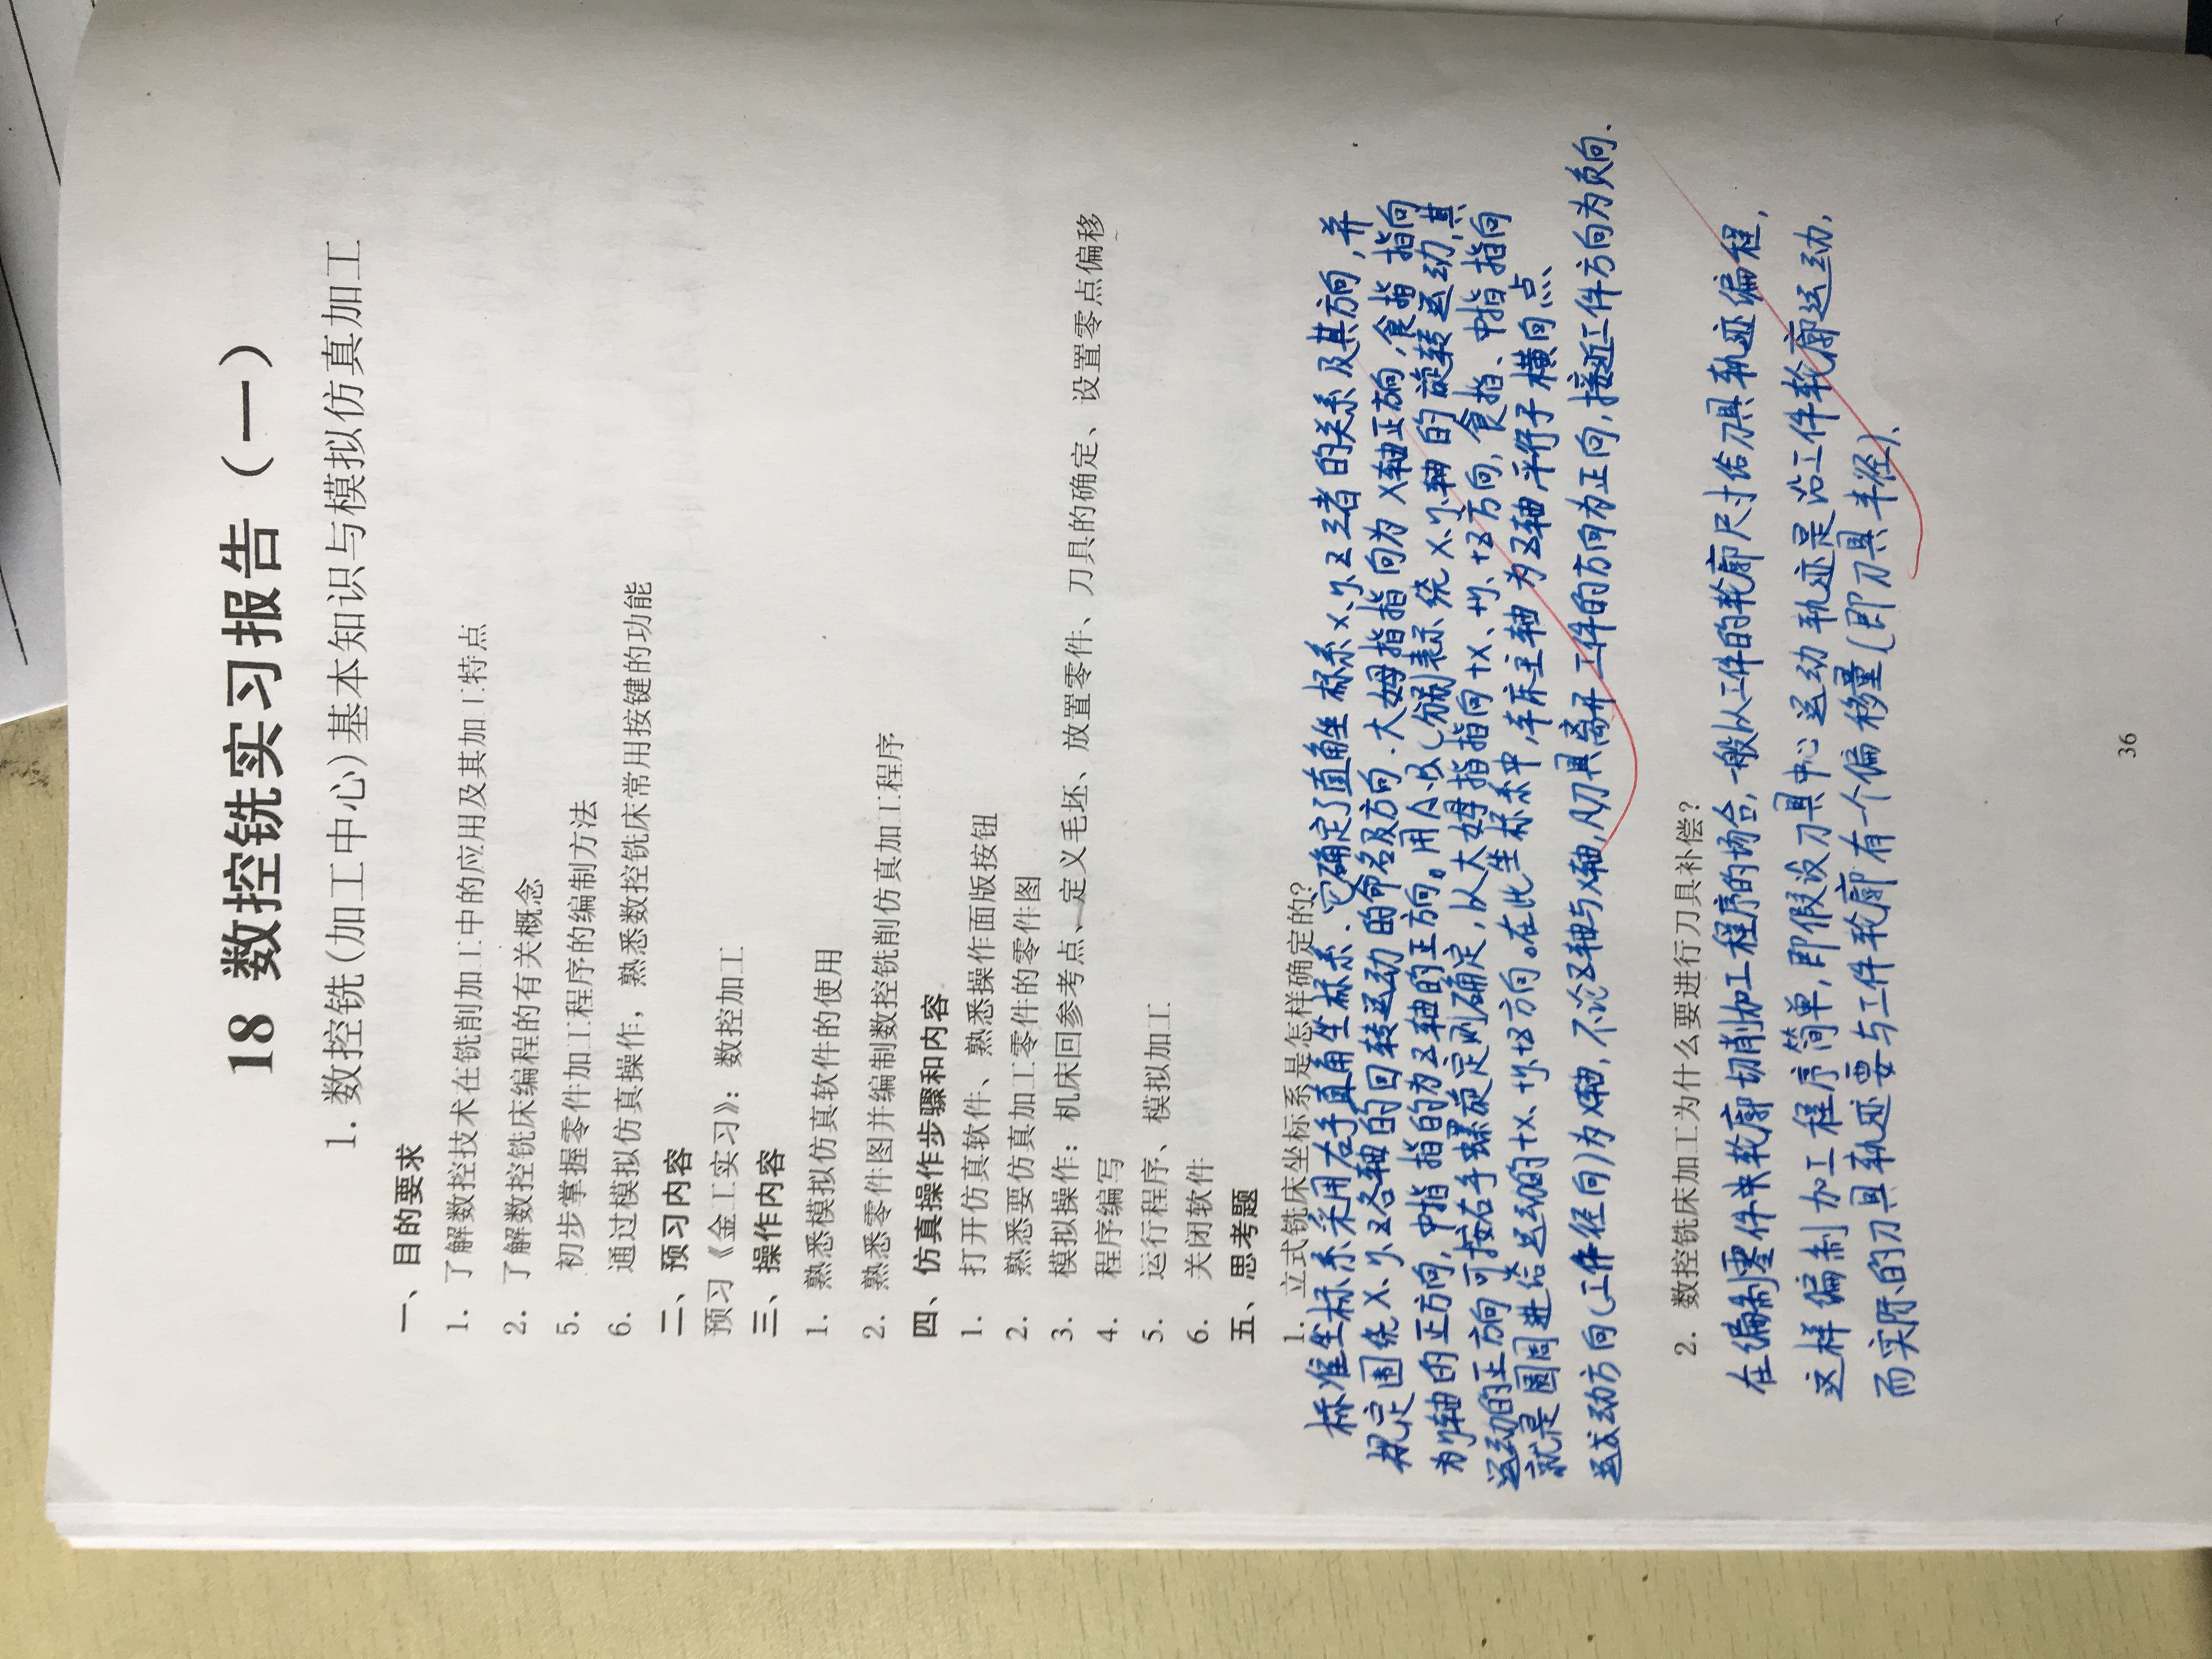 18 数控铣实习报告（一）
1. 数控铣(加工中心)基本知识与模拟仿真加工
一、目的要求
1. 了解数控技术在铣削加工中的应用及其加工特点
2. 了解数控铣床编程的有关概念
5. 初步掌握零件加工程序的编制方法
6. 通过模拟仿真操作，熟悉数控铣床常用按键的功能
二、预习内容
预习《金工实习》：数控加工
三、操作内容
1. 熟悉模拟仿真软件的使用
2. 熟悉零件图并编制数控铣削仿真加工程序
四、仿真操作步骤和内容
1. 打开仿真软件、熟悉操作面版按钮
2. 熟悉要仿真加工零件的零件图
3. 模拟操作：机床回参考点、定义毛坯、放置零件、刀具的确定、设置零点偏移
4. 程序编写
5. 运行程序、模拟加工
6. 关闭软件
五、思考题
1. 立式铣床坐标系是怎样确定的?
标准坐标系采用右手直角坐标系.它确定了直角坐标系X、Y、Z三者的关系及其方向,并
规定围绕X、Y、Z各轴的回转运动的命名及方向.大姆指指向为X轴正方向,食指指向
为Y轴的正方向,中指指的为Z轴的正方向。用A、B、C分别表示绕X、Y、Z轴的旋转运动,其
运动的正方向可按右手螺旋定则确定,以大姆指指向+X、+Y、+Z方向,食指、中指指向
就是圆周进给运动的+X、+Y、+Z方向。在此坐标系中,车床主轴为Z轴,平行于横向
运动方向(工件径向)为X轴,不论Z轴与X轴,凡刀具离开工件的方向为正向,接近工件方向为负向.
2. 数控铣床加工为什么要进行刀具补偿?
在编制零件来轮廓切削加工程序的场合,一般以工件的轮廓尺寸给刀具轨迹编程,
这样编制加工程序简单,即假设刀具中心运动轨迹是沿工件轮廓运动,
而实际的刀具轨迹要与工件轮廓有一个偏移量(即刀具半径).
36